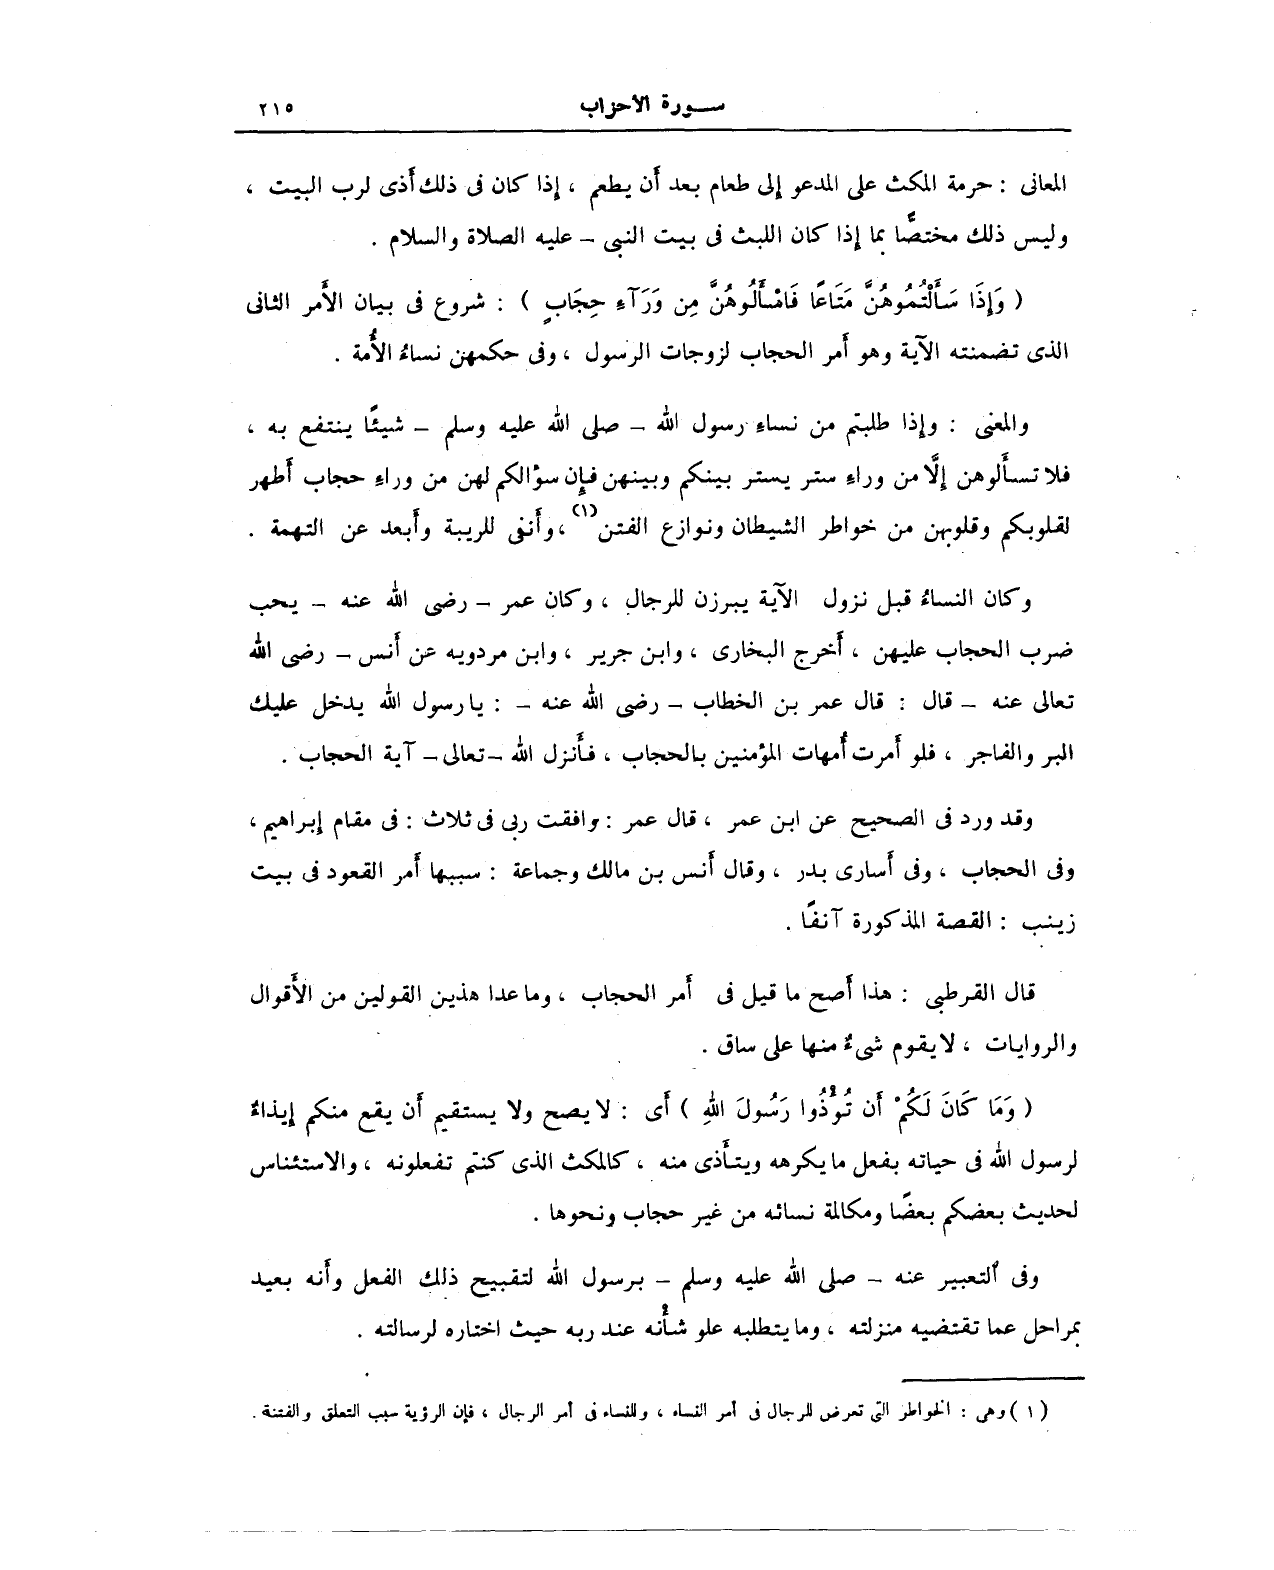 سورة الاحزاب ٢١٥
المعانى : حرمة المكث على المدعو إلى طعام بعد أن يطعم ، إذا كان فى ذلك أذى لرب البيت ،
وليس ذلك مختصًّا بما إذا كان اللبث فى بيت النبى – عليه الصلاة والسلام .
( وَإِذَا سَأَلْتُمُوهُنَّ مَتَاعًا فَاسْأَلُوهُنَّ مِن وَرَآءِ حِجَابٍ ) : شروع فى بيان الأمر الثانى
الذى تضمنته الآية وهو أمر الحجاب لزوجات الرسول ، وفى حكمهن نساءُ الأُمة .
والمعنى : وإذا طلبتم من نساءِ رسول الله – صلى الله عليه وسلم – شيئًا ينتفع به ،
فلا تسأَلوهن إلَّا من وراءِ ستر يستر بينكم وبينهن فإن سؤالكم لهن من وراءِ حجاب أطهر
لقلوبكم وقلوبهن من خواطر الشيطان ونوازع الفتن (١) ، وأَنفى للريبة وأَبعد عن التهمة .
وكان النساءُ قبل نزول الآية يبرزن للرجال ، وكان عمر – رضى الله عنه – يحب
ضرب الحجاب عليهن ، أَخرج البخارى ، وابن جرير ، وابن مردويه عن أَنس – رضى الله
تعالى عنه – قال : قال عمر بن الخطاب – رضى الله عنه – : يا رسول الله يدخل عليك
البر والفاجر ، فلو أَمرت أُمهات المؤمنين بالحجاب ، فأَنزل الله – تعالى – آية الحجاب .
وقد ورد فى الصحيح عن ابن عمر ، قال عمر : وافقت ربى فى ثلاث : فى مقام إبراهيم ،
وفى الحجاب ، وفى أَسارى بدر ، وقال أَنس بن مالك وجماعة : سببها أَمر القعود فى بيت
زينب : القصة المذكورة آنفًا .
قال القرطبى : هذا أَصح ما قيل فى أَمر الحجاب ، وما عدا هذين القولين من الأَقوال
والروايات ، لا يقوم شىءٌ منها على ساق .
( وَمَا كَانَ لَكُمْ أَن تُؤْذُوا رَسُولَ اللهِ ) أَى : لا يصح ولا يستقيم أَن يقع منكم إيذاءٌ
لرسول الله فى حياته بفعل ما يكرهه ويتأَذى منه ، كالمكث الذى كنتم تفعلونه ، والاستئناس
لحديث بعضكم بعضًا ومكالمة نسائه من غير حجاب ونحوها .
وفى التعبير عنه – صلى الله عليه وسلم – برسول الله لتقبيح ذلك الفعل وأَنه بعيد
بمراحل عما تقتضيه منزلته ، وما يتطلبه علو شأْنه عند ربه حيث اختاره لرسالته .
( ١ ) وهى : الخواطر التى تعرض للرجال فى أمر النساء ، وللنساء فى أمر الرجال ، فإن الرؤية سبب التعلق والفتنة .